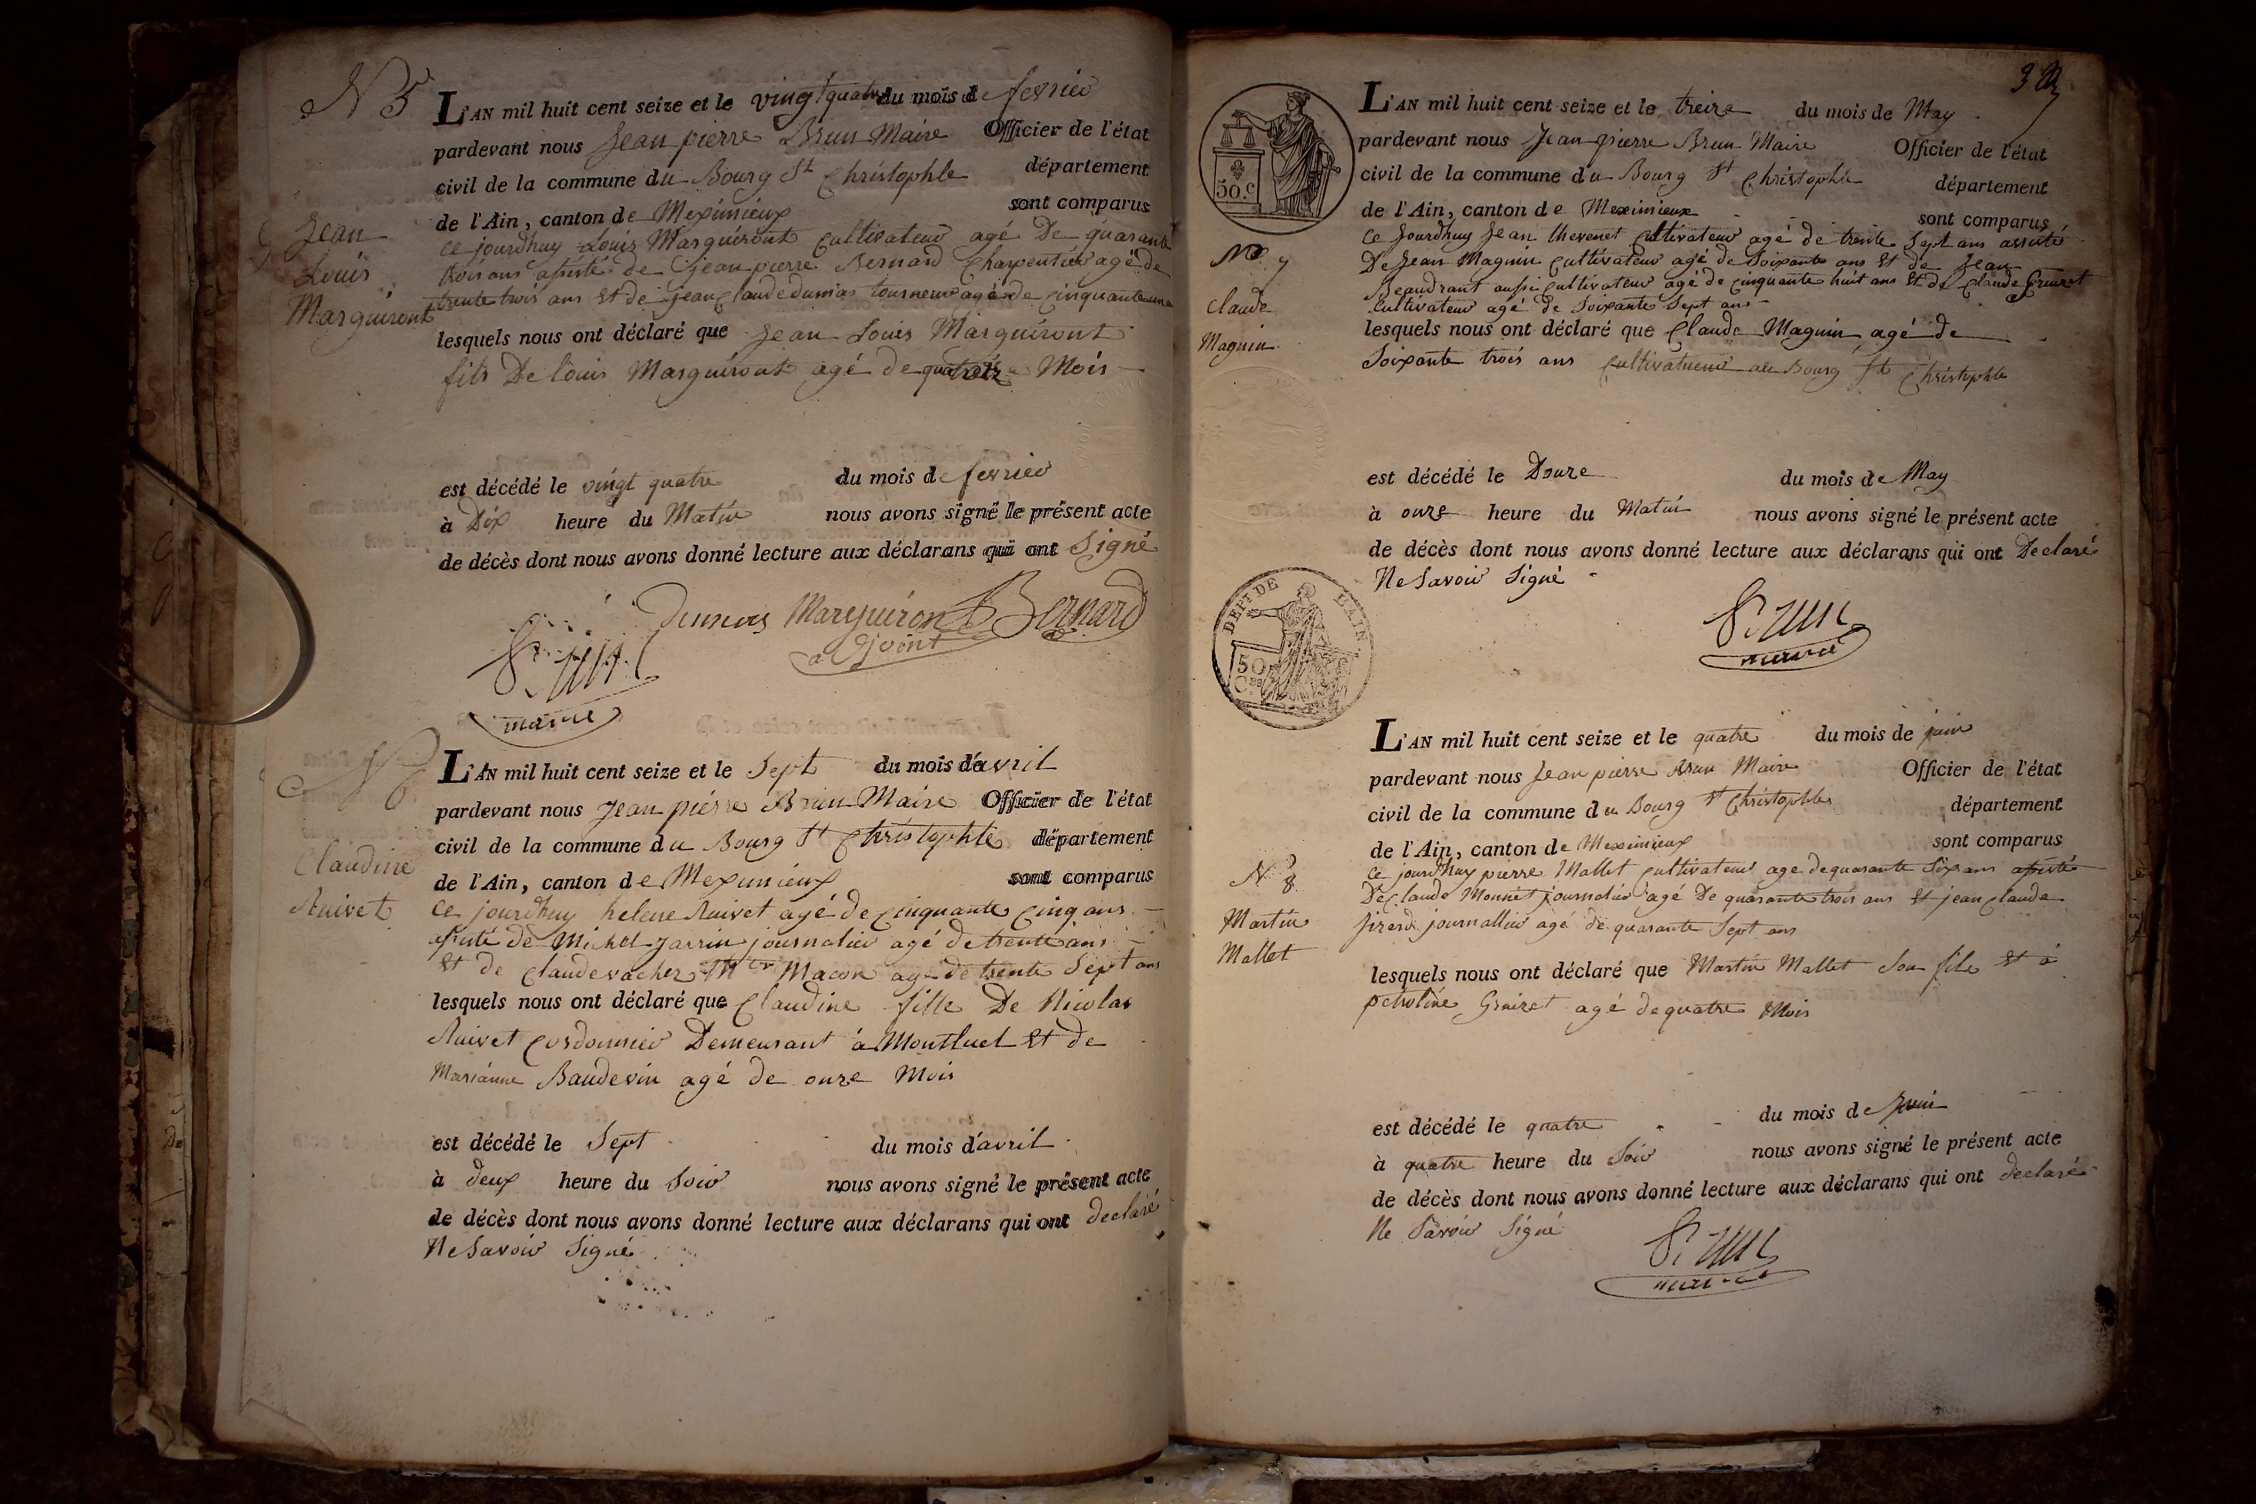 N 5
L'AN mil huit cent seize et le vingt quatre du mois de fevrier
pardevant nous Jean pierre Brun Maire Officier de l'état
civil de la commune du Bourg St Christophle département
de l'Ain, canton de Meximieux sont comparus
ce jourdhuy Louis Marguiront cultivateur agé De quarante
trois ans assisté de Jean pierre Bernard charpentier agé de
trente trois ans Et de jean claude dumas tourneur agé de cinquante un
Jean
Louis
Marguiront
lesquels nous ont déclaré que Jean Louis Marguiront
fils De louis Marguiront agé de Mois
est décédé le vingt quatre du mois de fevrier
à Dix heure du Matin nous avons signé le présent acte
de décès dont nous avons donné lecture aux déclarans qui ont Signé
Dumas Marguiron Bernard
adjoint
Brun
maire
N 6
L'AN mil huit cent seize et le Sept du mois d'avril
pardevant nous Jean pierre Brun Maire Officier de l'état
civil de la commune du Bourg St Christophle département
de l'Ain, canton de Meximieux sont comparus
ce jourdhuy helene Ruivet agé de cinquante cinq ans
assisté de Michel Jarrin journalier agé de trente ans
Et de claude vacher Mtre Macon agé de trente Sept ans
Claudine
Ruivet
lesquels nous ont déclaré que Claudine fille De Nicolas
Ruivet cordonnier Demeurant à Montluel Et de
Marianne Baudevin agé de onze Mois
est décédé le Sept du mois d'avril
à deux heure du Soir nous avons signé le présent acte
de décès dont nous avons donné lecture aux déclarans qui ont declaré
Ne Savoir Signé
3
50.c
L'AN mil huit cent seize et le treize du mois de May
pardevant nous Jean pierre Brun Maire Officier de l'état
civil de la commune du Bourg St Christophle département
de l'Ain, canton de Meximieux sont comparus
ce Jourdhuy Jean thevenet Cultivateur agé de trente Sept ans assisté
De Jean Maguin cultivateur agé de Soixante ans Et de Jean
Beaudrant aussi cultivateur agé de cinquante huit ans Et de Claude
Cultivateur agé de Soixante Sept ans
No 7
Claude
Maguin
lesquels nous ont déclaré que Claude Maguin agé de
Soixante trois ans cultivateur au Bourg St Christophle
est décédé le Douze du mois de May
à onze heure du Matin nous avons signé le présent acte
de décès dont nous avons donné lecture aux déclarans qui ont Declaré
Ne Savoir Signé
DEPT DE L'AIN
50
Ces
Brun
maire
L'AN mil huit cent seize et le quatre du mois de juin
pardevant nous Jean pierre Brun Maire Officier de l'état
civil de la commune du Bourg St Christophle département
de l'Ain, canton de Meximieux sont comparus
ce jourdhuy pierre Mallet cultivateur agé de quarante Six ans assisté
De claude Monnet journalier agé De quarante trois ans Et jean claude
journallier agé de quarante Sept ans
No 8
Martin
Mallet
lesquels nous ont déclaré que Martin Mallet Son fils Et à
petroline agé de quatre Mois
est décédé le quatre du mois de Juin
à quatre heure du Soir nous avons signé le présent acte
de décès dont nous avons donné lecture aux déclarans qui ont declaré
Ne Savoir Signé
Brun
maire